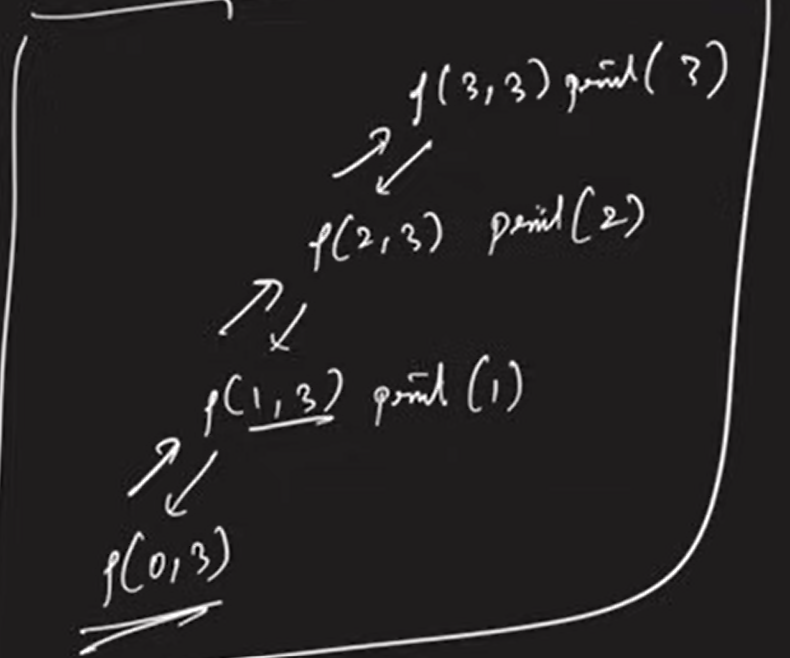 f(3,3) print(3)
f(2,3) print(2)
f(1,3) print(1)
f(0,3)